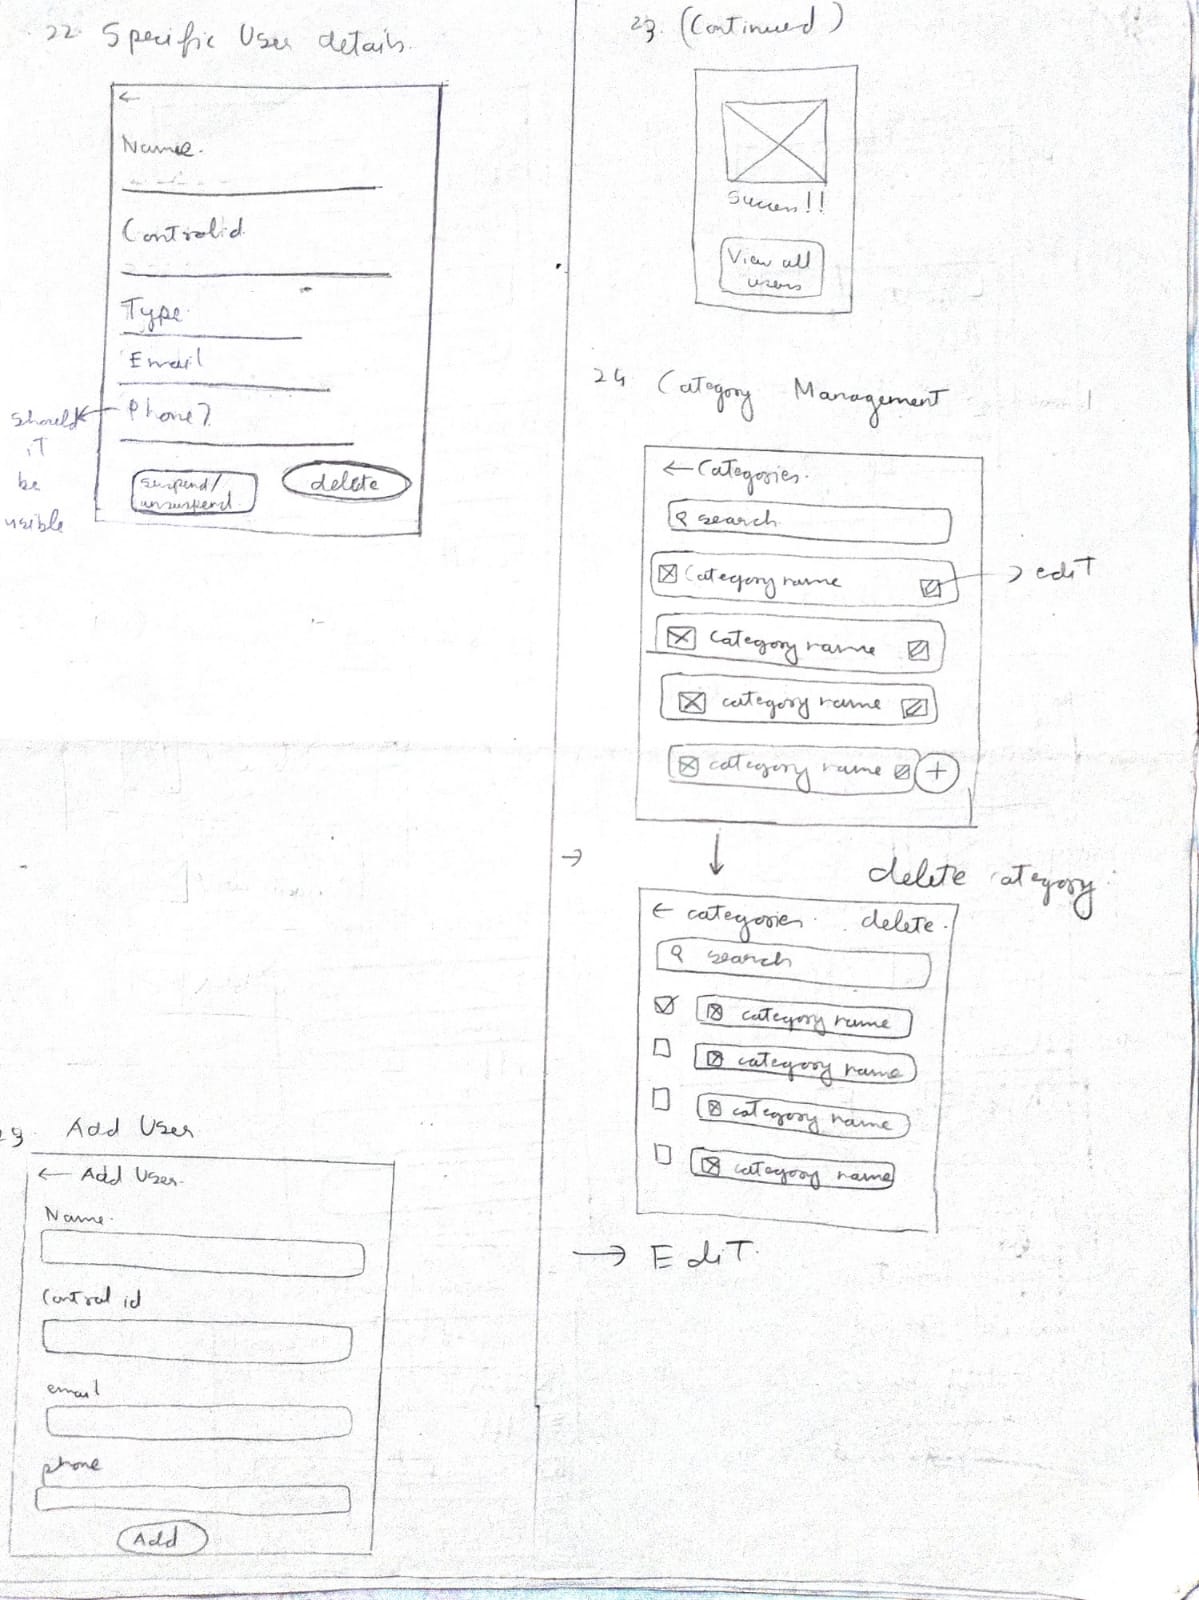 22. Specific User details.
←
Name.
Contralid
Type.
Email
Phone?
should
it
be
visible
suspend/
unsuspend.
delete
23. Add User
← Add User.
Name.
Contral id
email
phone
Add
23. (Continued)
Success!!
View all
users
24 Category Management
← Categories.
search
Category name
→ edit
Category name
category name
category name
+
→ ↓
delete category.
← categories. delete.
search
category name
category name
category name
category name
→ Edit.